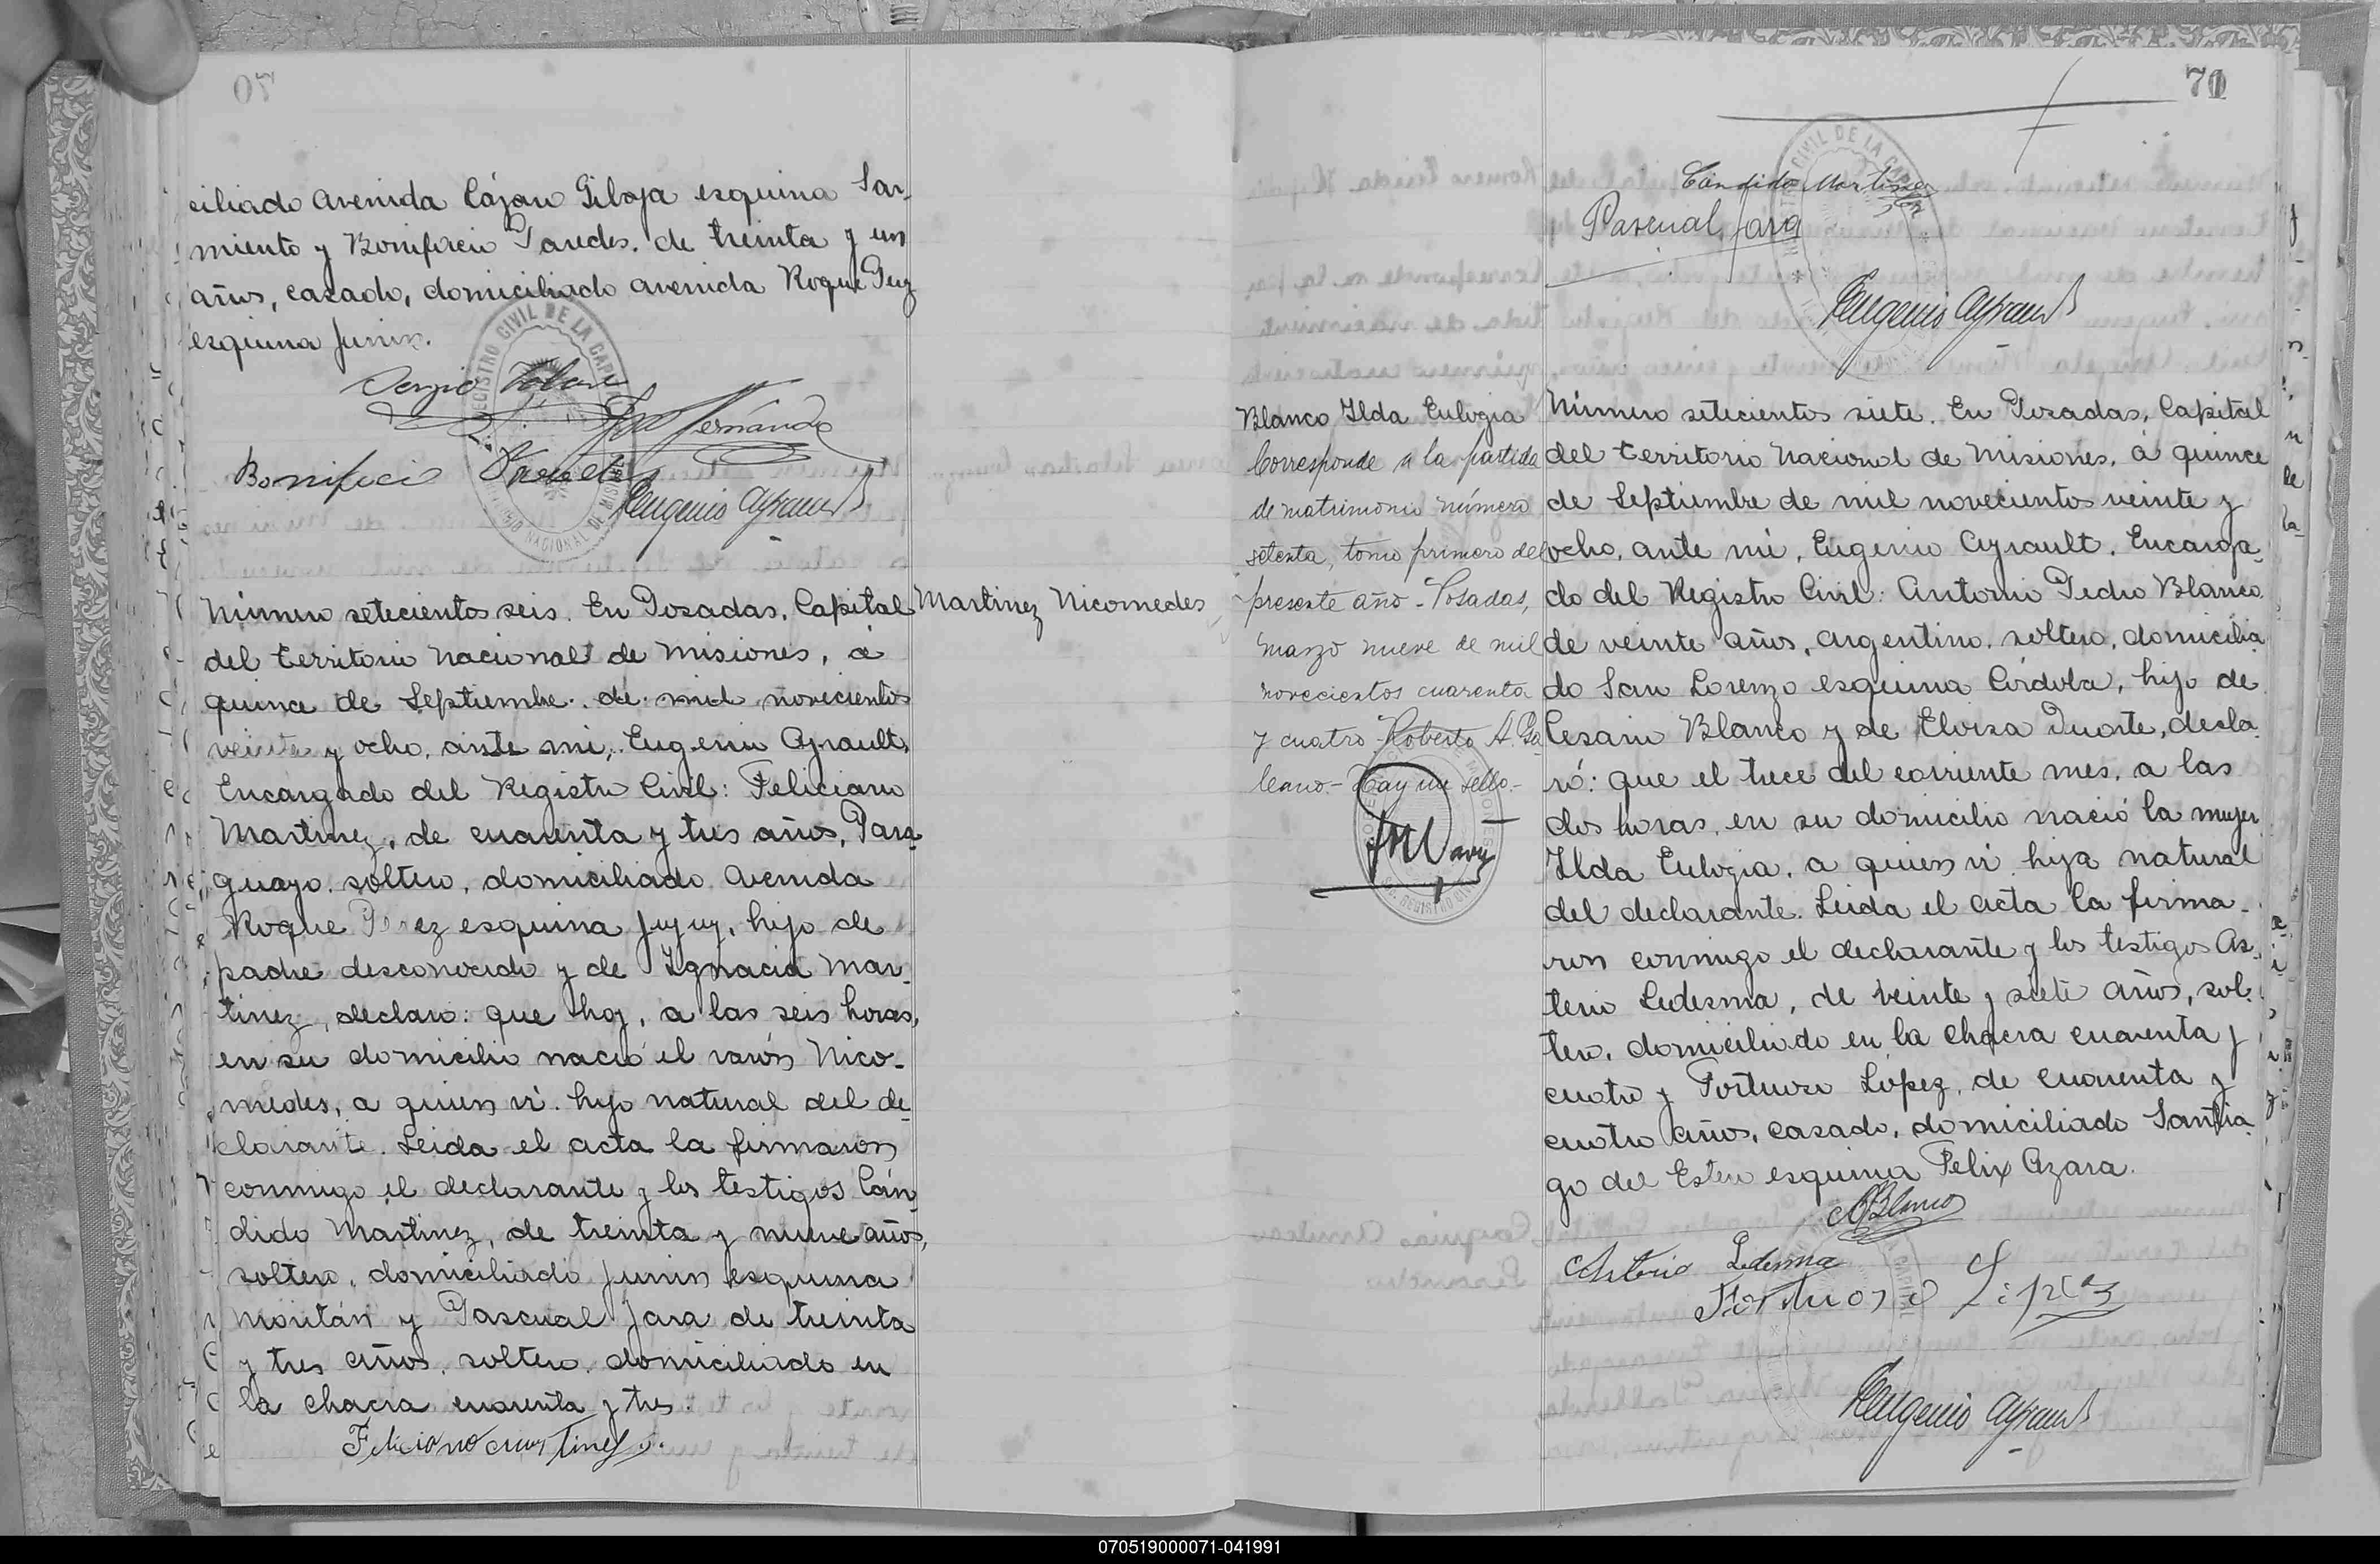 70
ciliado avenida Cázaro Giboja esquina Sar-
miento y Bonifacio Paredes, de treinta y un
años, casado, domiciliado avenida Roque Perez
esquina Junin.
REGISTRO CIVIL DE LA CAPITAL
TERRITORIO NACIONAL DE MISIONES
Sergio
Fernández
Bonifacio Paredes
Eugenio Ayrault
Martinez Nicomedes
Número setecientos seis. En Posadas, Capital
del territorio nacional de Misiones, á
quince de Septiembre de mil novecientos
veinte y ocho, ante mi, Eugenio Ayrault,
Encargado del Registro Civil: Feliciano
Martinez, de cuarenta y tres años, Para-
guayo, soltero, domiciliado Avenida
Roque Perez esquina Jujuy, hijo de
padre desconocido y de Ignacia Mar-
tinez, declaro: que hoy, a las seis horas,
en su domicilio nació el varón Nico-
medes, a quien ví. hijo natural del de-
clarante. Leida el acta la firmaron
conmigo el declarante y los testigos Cán-
dido Martinez, de treinta y nueve años,
soltero, domiciliado Junin esquina
Moritán y Pascual Jara de treinta
y tres años, soltero, domiciliado en
la chacra cuarenta y tres.
Feliciano Martinez
71
Cándido Martinez
Pascual Jara
Eugenio Ayrault
Blanco Ilda Eulogia
Corresponde a la partida
de matrimonio número
setenta, tomo primero del
presente año - Posadas,
marzo nueve de mil
novecientos cuarenta
y cuatro - Roberto A. Ga-
leano.- Hay un sello.-
Número setecientos siete. En Posadas, Capital
del territorio nacional de Misiones, á quince
de Septiembre de mil novecientos veinte y
ocho, ante mi, Eugenio Ayrault, Encarga-
do del Registro Civil: Antonio Pedro Blanco,
de veinte años, argentino, soltero, domicilia-
do San Lorenzo esquina Córdoba, hijo de
Cesario Blanco y de Eloisa Duarte, decla-
ró: que el trece del corriente mes, a las
dos horas, en su domicilio nació la mujer
Ilda Eulogia, a quien ví. hija natural
del declarante. Leida el acta la firma-
ron conmigo el declarante y los testigos As-
terio Ledesma, de veinte y siete años, sol-
tero, domiciliado en la chacra cuarenta y
cuatro y Fortunoso López, de cuarenta y
cuatro años, casado, domiciliado Santia-
go del Estero esquina Felix Azara.
ABlanco
Asterio Ledesma
López
Eugenio Ayrault
070519000071-041991